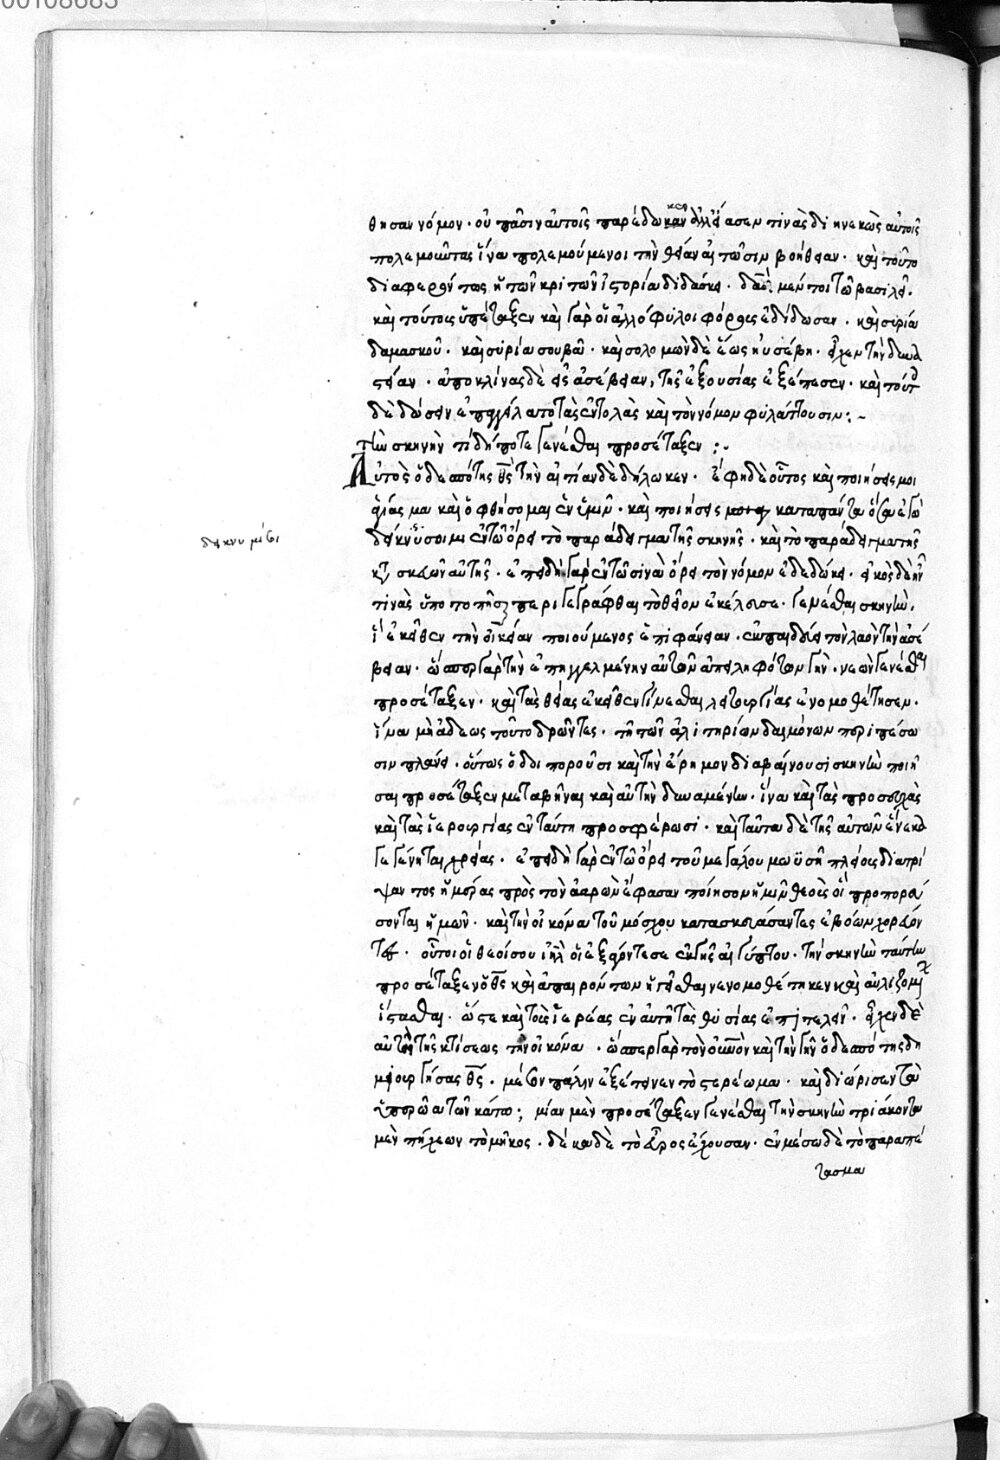 00108683
θησαν νόμον· οὐ πᾶσιν αὐτοῖς παρέδωκαν ἀλλ' εἴασέν τινας διηνεκῶς αὐτοῖς
πολεμοῦντας ἵνα πολεμούμενοι τὴν θείαν αἰτῶσιν βοήθειαν· καὶ τοῦτο
διαφερόντως ἡ τῶν κριτῶν ἱστορία διδάσκει· δαδ μέντοι τῶ βασιλεῖ·
καὶ τούτοις ὑπέταξεν καὶ γὰρ οἱ ἀλλόφυλοι φόρους ἐδίδωσαν· καὶ συρία
δαμασκοῦ· καὶ συρία σουβᾶ· καὶ σολομῶν δὲ ἕως ηὐσέβη· εἶχεν τὴν δυνα
στείαν· ἀποκλίνας δὲ εἰς ἀσέβειαν, τῆς ἐξουσίας ἐξέπεσεν· καὶ τούτ
δὲ δώσειν ἐπηγγείλατο τὰς ἐντολὰς καὶ τὸν νόμον φυλάττουσιν:~
τὴν σκηνὴν τί δήποτε γενέσθαι προσέταξεν:~
Αὐτὸς ὁ δεσπότης θς τὴν αἰτίαν δεδήλωκεν· ἔφη δὲ οὗτος καὶ ποιήσεις μοι
ἁγίασμα καὶ ὀφθήσομαι ἐν ὑμῖν· καὶ ποιήσεις μοι κατὰ πάντα ὅσα ἐγὼ
δεικνύσοιμι ἐν τῶ ὄρει τὸ παράδειγμα τῆς σκηνῆς· καὶ τὸ παράδειγμα τῆς
δείκνυμί σοι
σκευῶν αὐτῆς· ἐπειδὴ γὰρ ἐν τῶ σινᾶ ὄρει τὸν νόμον ἐδεδώκει· εἰκὸς δὲ ἦν
τινὰς ὑποτοπῆσαι περιγεγράφθαι τὸ θεῖον ἐκέλευσε· γενέσθαι σκηνὴν,
ἵ' ἐκεῖθεν τὴν οἰκείαν ποιούμενος ἐπιφάνειαν· ἐκπαιδεύει τὸν λαὸν τὴν εὐσέ
βειαν· ὥσπερ γὰρ τὴν ἐπηγγελμένην αὐτῶν ἀπειληφότων γὴν· νεὼν γενέσθαι
προσέταξεν· καὶ τὰς θείας ἐκεῖθεν γίνεσθαι λειτουργίας ἐνομοθέτησεν·
ἵνα μὴ ἀδεῶς τοῦτο δρῶντες· τῆ τῶν ἀλιτηρίων δαιμόνων περιπέσω
σιν πλάνη· οὕτως ὁδοιποροῦσι καὶ τὴν ἔρημον διαβαίνουσι σκηνὴν ποιῆ
σαι προσέταξεν μεταβῆναι καὶ αὐτὴν δυναμένην· ἵνα καὶ τὰς προσευχὰς
καὶ τὰς ἱερουργίας ἐν ταύτη προσφέρωσι· καὶ ταῦτα δὲ τῆς αὐτῶν ἕνεκα
γεγένηται χρείας· ἐπειδὴ γὰρ ἐν τῶ ὄρει τοῦ μεγάλου μωϋσῆ πλείοις διατρί
ψαντος ἡμέρας πρὸς τὸν ἀαρὼν ἔφασαν ποίησον ἡμῖν θεοὺς οἳ προπορεύ
σονται ἡμῶν· καὶ τὴν εἰκόνα τοῦ μόσχου κατασκευάσαντες ἐβόων χορεύον
τες· οὗτοι οἱ θεοί σου ιηλ οἳ ἐξαγαγόντες σε ἐκ γῆς αἰγύπτου· τὴν σκηνὴν ταύτην
προσέταξεν ὁ θς καὶ ἀπαιρόντων ἡγεῖσθαι νενομοθέτηκεν καὶ αὐλιζομέ
ἵστασθαι· ὥστε καὶ τοὺς ἱερέας ἐν αὐτῆ τὰς θυσίας ἐπιτελεῖν· εἶχεν δὲ
αὐτὴ τῆς κτίσεως τὴν εἰκόνα· ὥσπερ γὰρ τὸν οὐνὸν καὶ τὴν γῆν ὁ δεσπότης δη
μιουργήσας θς· μέσον πάλιν ἐξέτεινεν τὸ στερέωμα· καὶ διώρισεν τὰ
ὑπερῶα τῶν κάτω; μίαν μὲν προσέταξεν γενέσθαι τὴν σκηνὴν τριάκοντα
μὲν πήχεων τὸ μῆκος· δέκα δὲ τὸ εὖρος ἔχουσαν· ἐν μέσω δὲ τὸ παραπέ
τασμα